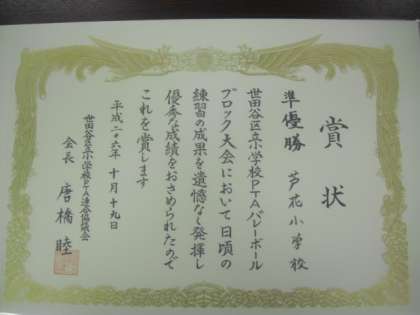 賞状
準優勝 芦花小学校
世田谷区立小学校PTAバレーボール
ブロック大会において日頃の
練習の成果を遺憾なく発揮し
優秀な成績をおさめられたので
これを賞します
平成二十六年 十月十九日
世田谷区立小学校PTA連合協議会
会長 唐橋 睦